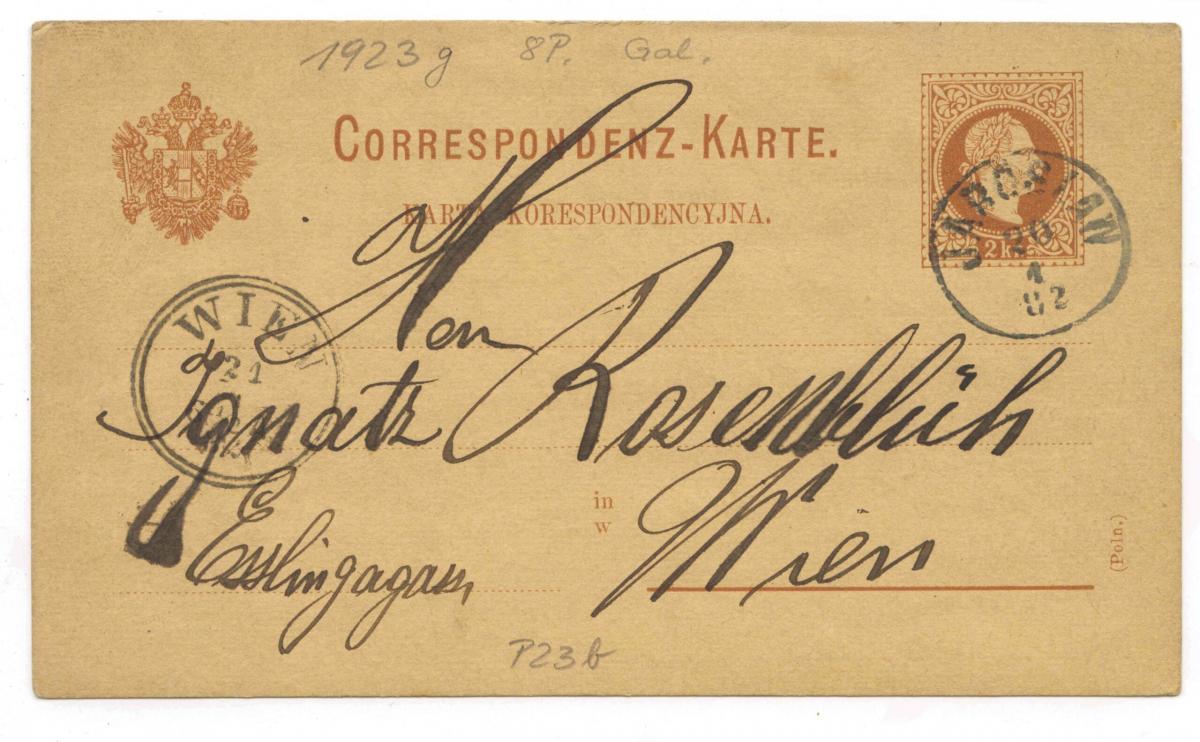 1923g 8P. Gal.
CORRESPONDENZ-KARTE.
KARTA KORESPONDENCYJNA.
2 kr.
JAROSLAW
20
1
82
WIEN
21
Herrn
Ignatz Rosenblüh
in
w
Wien
Esslingagasse
(Poln.)
P23b